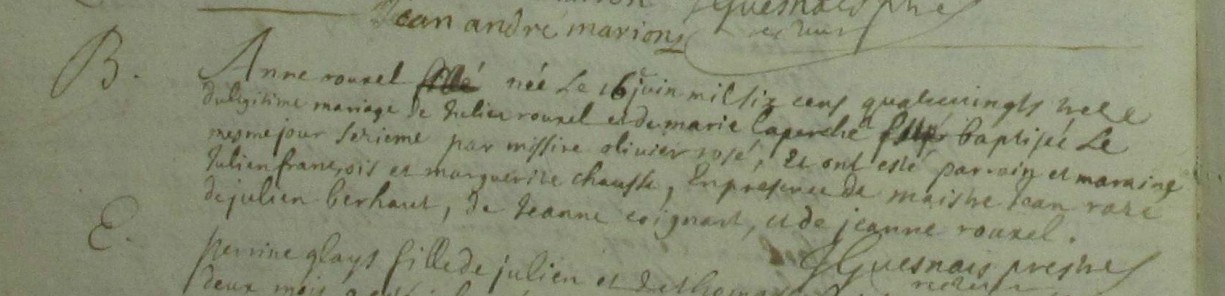 Guesnais pbre
Jean andré marion recteur
B. Anne rouxel née Le 16 juin mil six cens quatrevingts treze
du legitime mariage de Julien rouxel et de marie laperche baptisée Le
mesme jour sezieme par missire olivier rosé, Et ont esté parrain et maraine
Julien françois et marguerite chausse, En presence de maistre Jean rozé
de julien berhaut, de Jeanne coignart, et de jeanne rouxel.
Guesnais prestre
E. perrine glays fille de julien et de thomas
recteur
deux mois